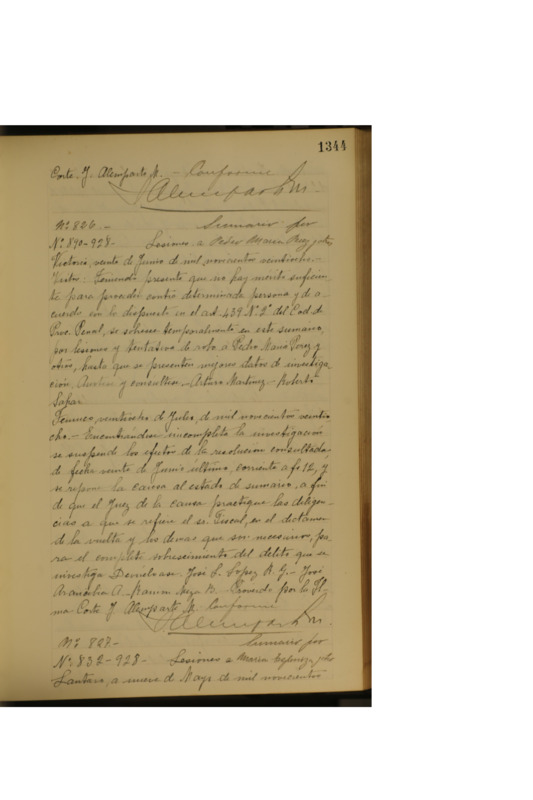 1344
Corte. J. Alemparte M. - Conforme
Alemparte M.
Nº 826. - Sumario por
Nº 890-928- Lesiones a Pedro María Perez y otro
Victoria, veinte de Junio de mil novecientos veintiocho.-
Vistos: Teniendo presente que no hay mérito suficien-
te para proceder contra determinada persona y de a-
cuerdo con lo dispuesto en el art. 439 Nº 2º del Cod. de
Proc. Penal, se sobresee temporalmente en este sumario,
por lesiones y tentativa de robo a Pedro María Perez y
otros, hasta que se presenten mejores datos de investiga-
ción. Anótese y consúltese. - Arturo Martinez - Roberto
Temuco, veintiocho de Julio, de mil novecientos veintio-
cho. - Encontrándose incompleta la investigación
se suspende los efectos de la resolucion consultada,
de fecha veinte de Junio último, corriente a fs 12, y
se repone la causa al estado de sumario, a fin
de que el Juez de la causa practique las diligen-
cias a que se refiere el sr. Fiscal, en el dictamen
de la vuelta y los demas que son necesarios, pa-
ra el completo esclarecimiento del delito que se
investiga. Devuélvase. José L. Lopez R. G. - José
Arancibia A. - Ramon Meza B. Proveido por la Il-
ma Corte. J. Alemparte M. Conforme
Alemparte M.
Nº 827- Sumario por
Nº 832-928- Lesiones a María y otro
Lautaro, a nueve de Mayo de mil novecientos